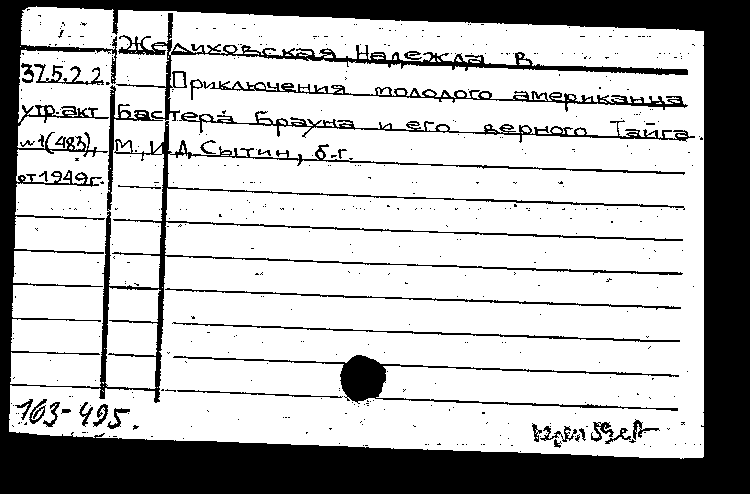 Желиховская, Надежда В.
37.5.2.2. Приключения молодого американца
утр. акт Бастера Брауна и его верного Тайга.
№1(483), М., И.Д. Сытин, б.г.
от 1949г.
103-495.